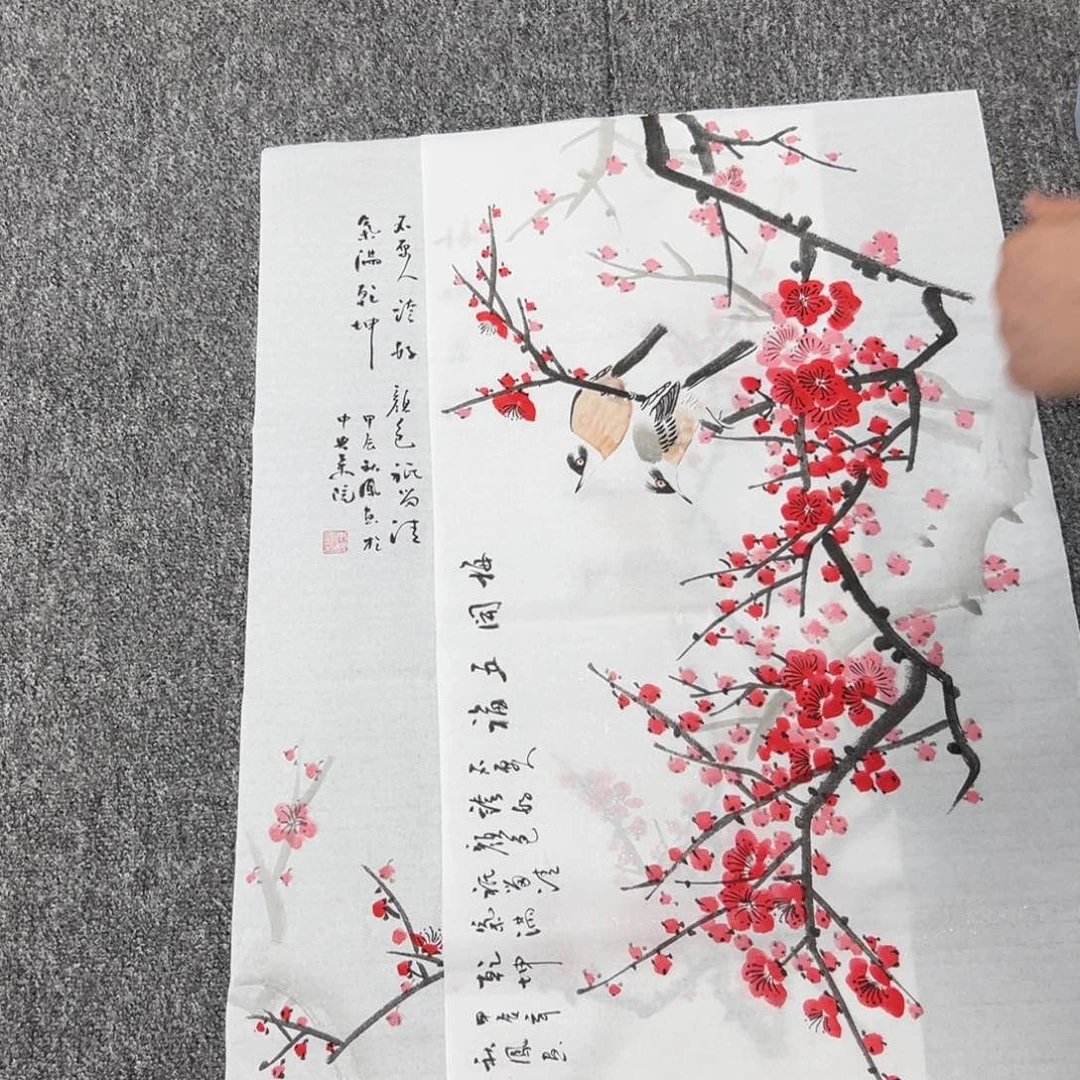 不要人誇好顏色祇留清
氣滿乾坤
甲辰秋鳳畫於
中央美院
梅開五福
不要人
誇好
顏色
祇留清
氣滿
乾坤
甲辰年
秋鳳畫